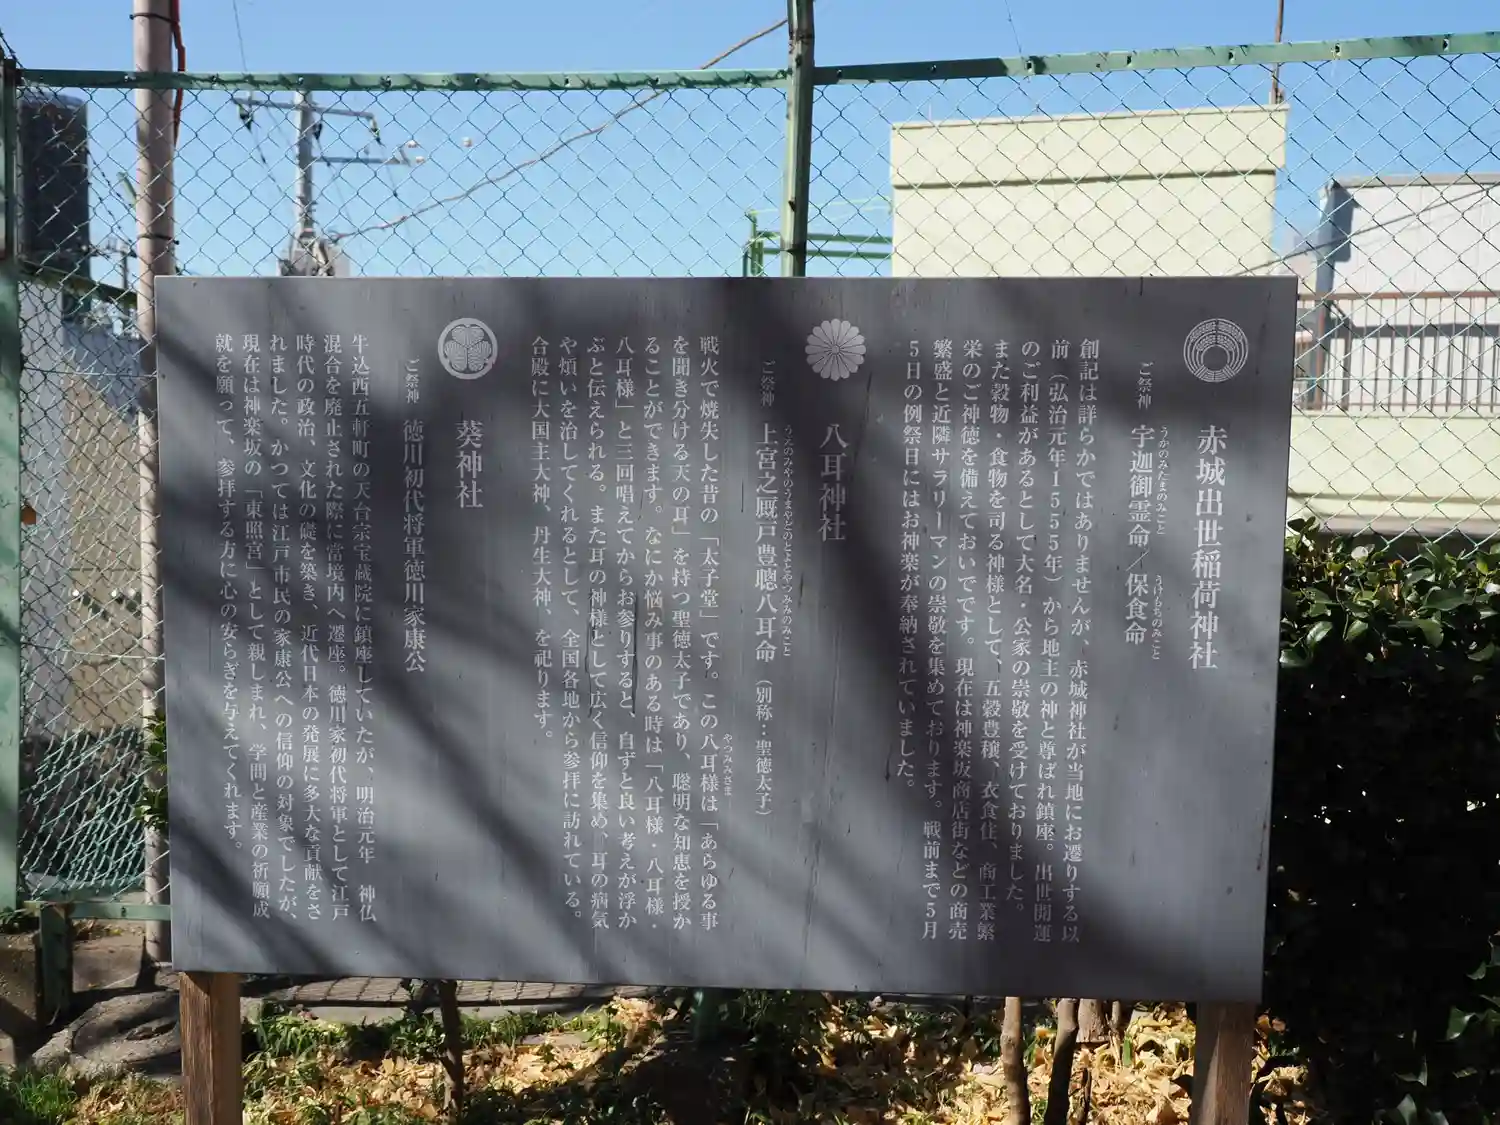 赤城出世稲荷神社
ご祭神 宇迦御霊命／保食命
うかのみたまのみこと
うけもちのみこと
創記は詳らかではありませんが、赤城神社が当地にお遷りする以
前（弘治元年１５５５年）から地主の神と尊ばれ鎮座。出世開運
のご利益があるとして大名・公家の崇敬を受けておりました。
また穀物・食物を司る神様として、五穀豊穣、衣食住、商工業繁
栄のご神徳を備えておいでです。現在は神楽坂商店街などの商売
繁盛と近隣サラリーマンの崇敬を集めております。戦前まで５月
５日の例祭日にはお神楽が奉納されていました。
八耳神社
ご祭神 上宮之厩戸豊聰八耳命（別称：聖徳太子）
うえのみやのうまやどのとよとやつみみのみこと
戦火で焼失した昔の「太子堂」です。この八耳様は「あらゆる事
やつみみさま
を聞き分ける天の耳」を持つ聖徳太子であり、聡明な知恵を授か
ることができます。なにか悩み事のある時は「八耳様・八耳様・
八耳様」と三回唱えてからお参りすると、自ずと良い考えが浮か
ぶと伝えられる。また耳の神様として広く信仰を集め、耳の病気
や煩いを治してくれるとして、全国各地から参拝に訪れている。
合殿に大国主大神、丹生大神、を祀ります。
葵神社
ご祭神 徳川初代将軍徳川家康公
牛込西五軒町の天台宗宝蔵院に鎮座していたが、明治元年 神仏
混合を廃止された際に当境内へ遷座。徳川家初代将軍として江戸
時代の政治、文化の礎を築き、近代日本の発展に多大な貢献をさ
れました。かつては江戸市民の家康公への信仰の対象でしたが、
現在は神楽坂の「東照宮」として親しまれ、学問と産業の祈願成
就を願って、参拝する方に心の安らぎを与えてくれます。